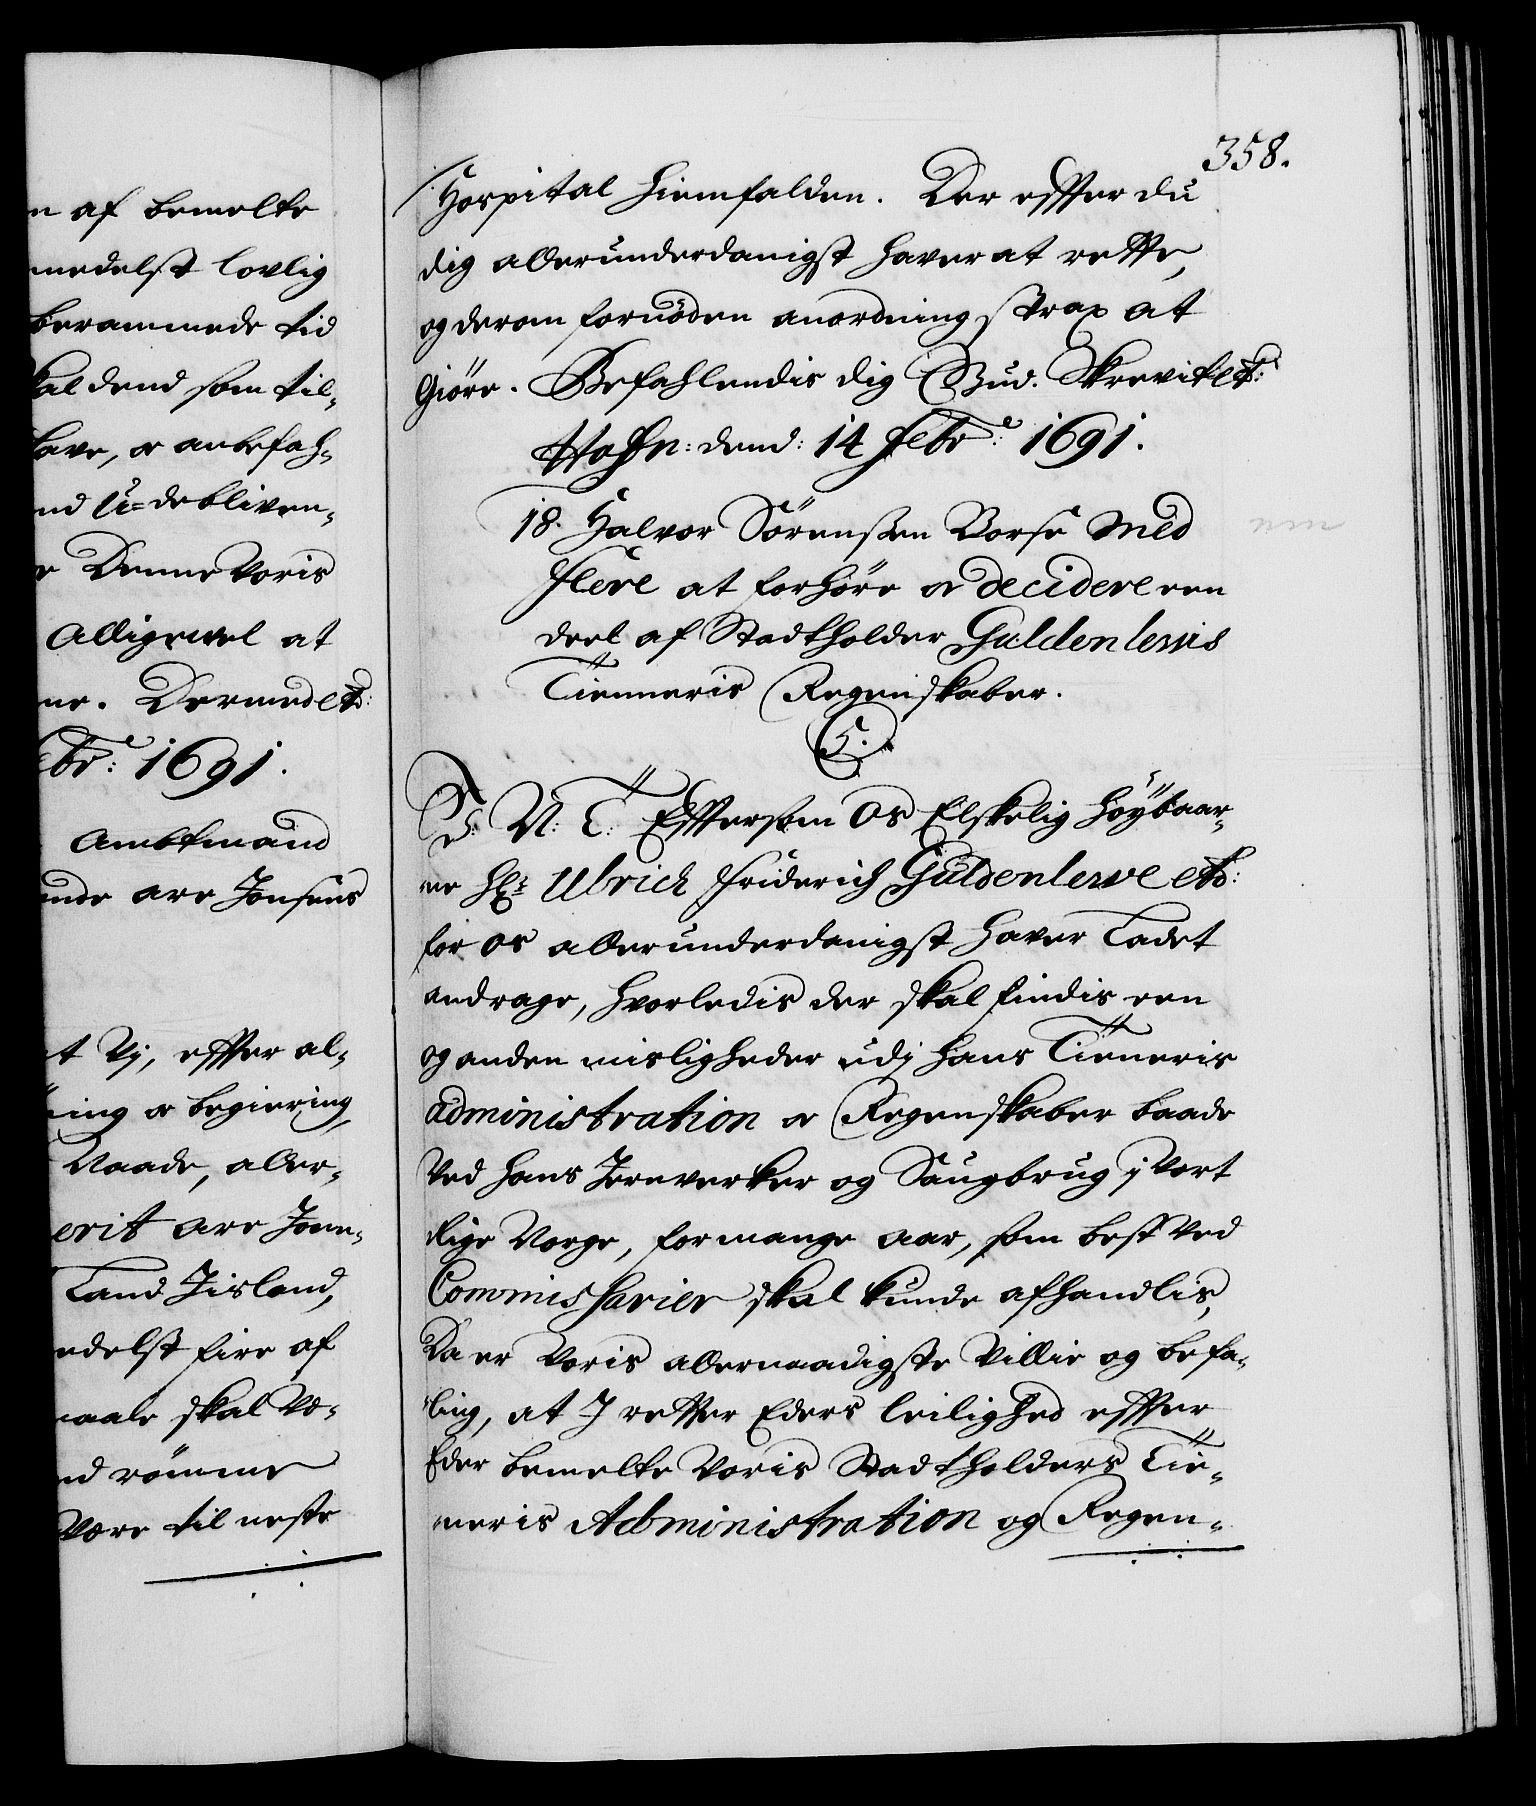 n af bemelte
medelst lovlig
berammede tid
skal dend som til-
have, or anbefah-
nd U-debliven-
Denne Voris
Alligevel at
ne. Dermed etc:
Febr: 1691.
Ambtmand
ende are Jonsens
t Vj, effter al-
ning or begiering,
Naade, aller-
erit are Jon-
Land Jisland,
edelst fire af
maale skal Væ-
nd römme
Være til neste
358.
Hospital hiemfalden. Der effter du
dig allerunderdanigst haver at rette,
og derom fornöden anordning strax at
Giöre. Befahlendis dig Gud. Skrevit etc:
Hafn: dend: 14 Febr: 1691.
18. Halvor Sörenßen Borse Med
Flere at forhöre or decidere een
deel af Stadtholder Guldenlewis
Tienneris Regenskaber.
C5.
D: V: C: Effterson Os Elskelig Höybaar-
ne Hr: Ulrich Friderich Guldenlewe etc:
for os allerunderdanigst haver Ladet
andrage, hvorledis der skal findis een
og anden misligheder udj hans Tieneris
administration or Regenskaber baade
Ved hans Jernverker og Saugbrug j Vort
Rige Norge, for mange aar, som best Ved
Commissarier skal kunde afhandlis,
Da er Voris allernaadigste Villie og befa-
ling, at J retter Eders leilighed effter
Eder bemelte Voris Stadtholders Tie-
neris Administration og Regen-